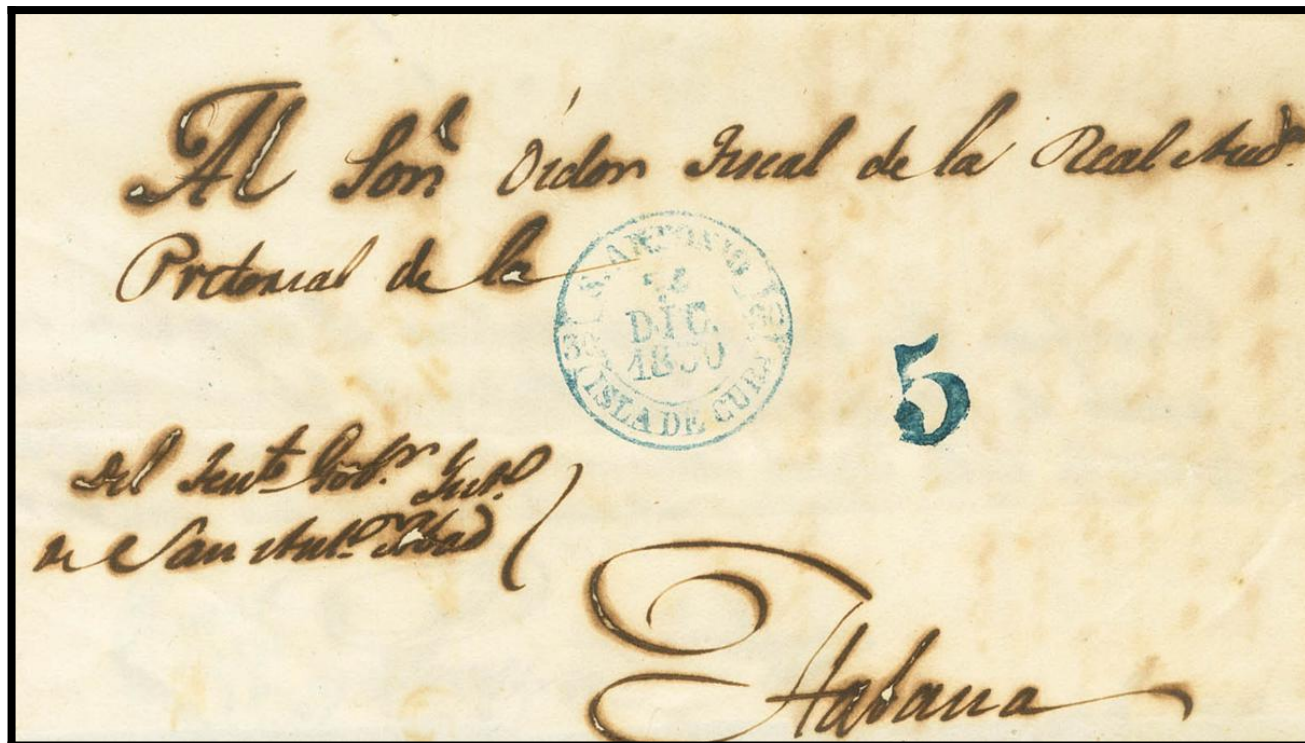 Al Sor. Oidor Fiscal de la Real Aud.
Pretorial de la
S. ANTONIO
DIC.
1850
ISLA DE CUBA
5
Del Tente. Gobr.
de San Anto. Abad
Habana